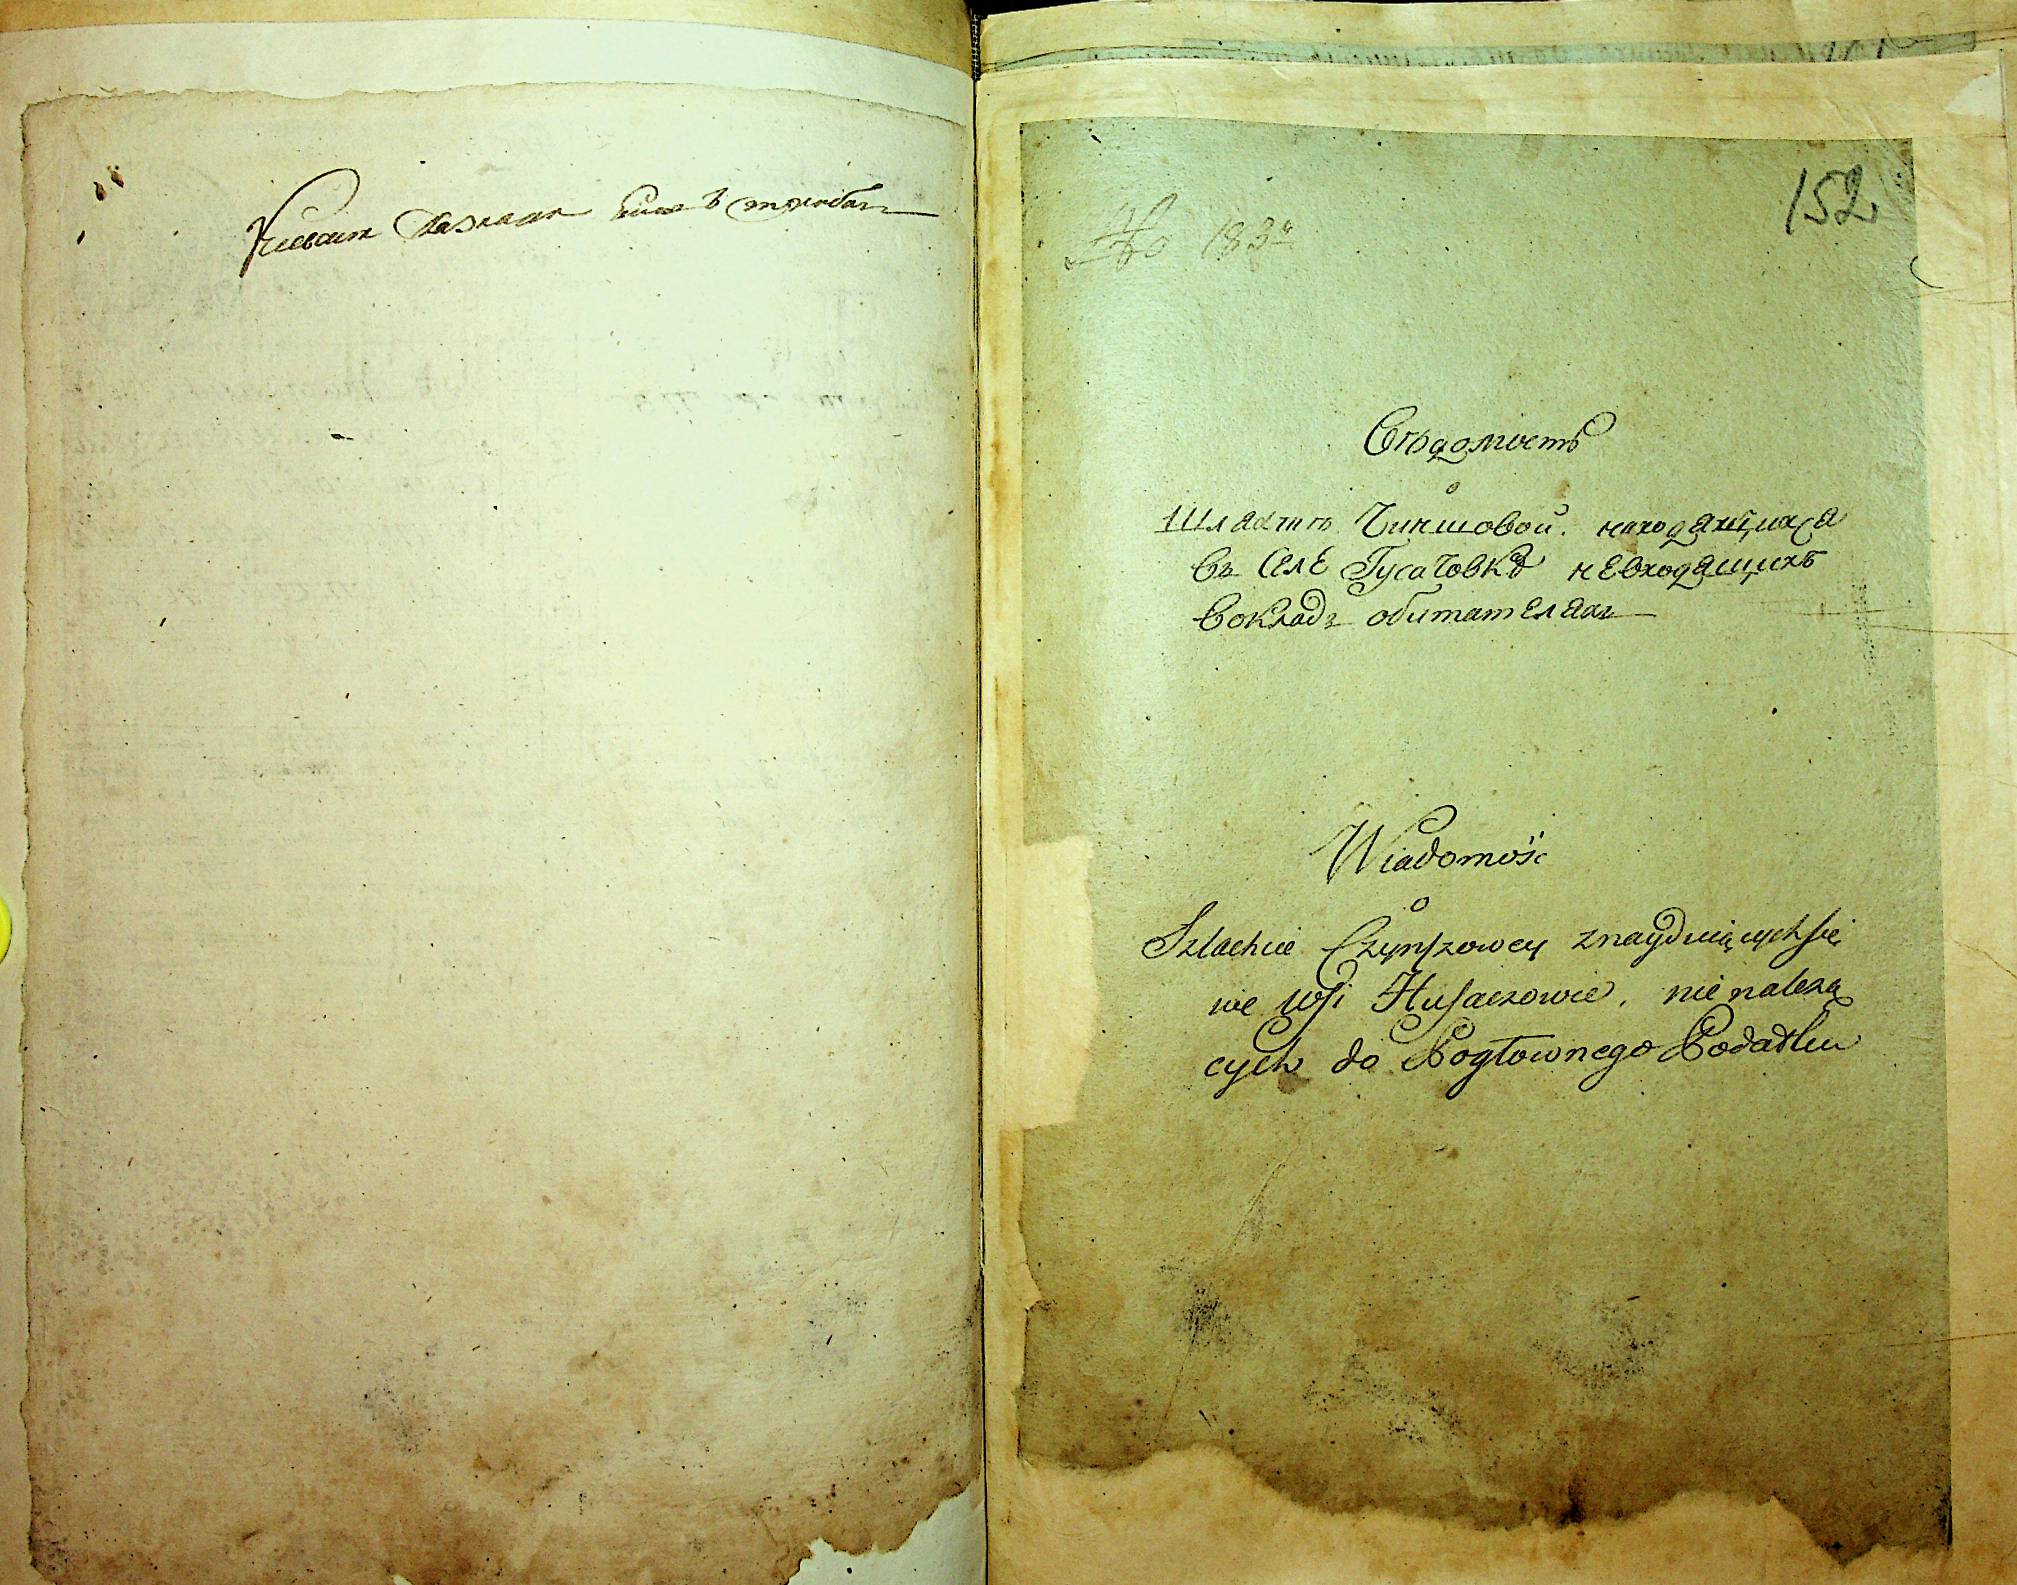 152
Вѣдомость
о
Шляхтѣ Чиншовой. находящихся
Въ Селе Гусачовкѣ невходящихъ
Вокладъ обитателях
Wiadomość
o
Szlachcie Czynszowey znayduiących się
we wsi Husaczowce, nie należą
cych do Pogłownego Podatku